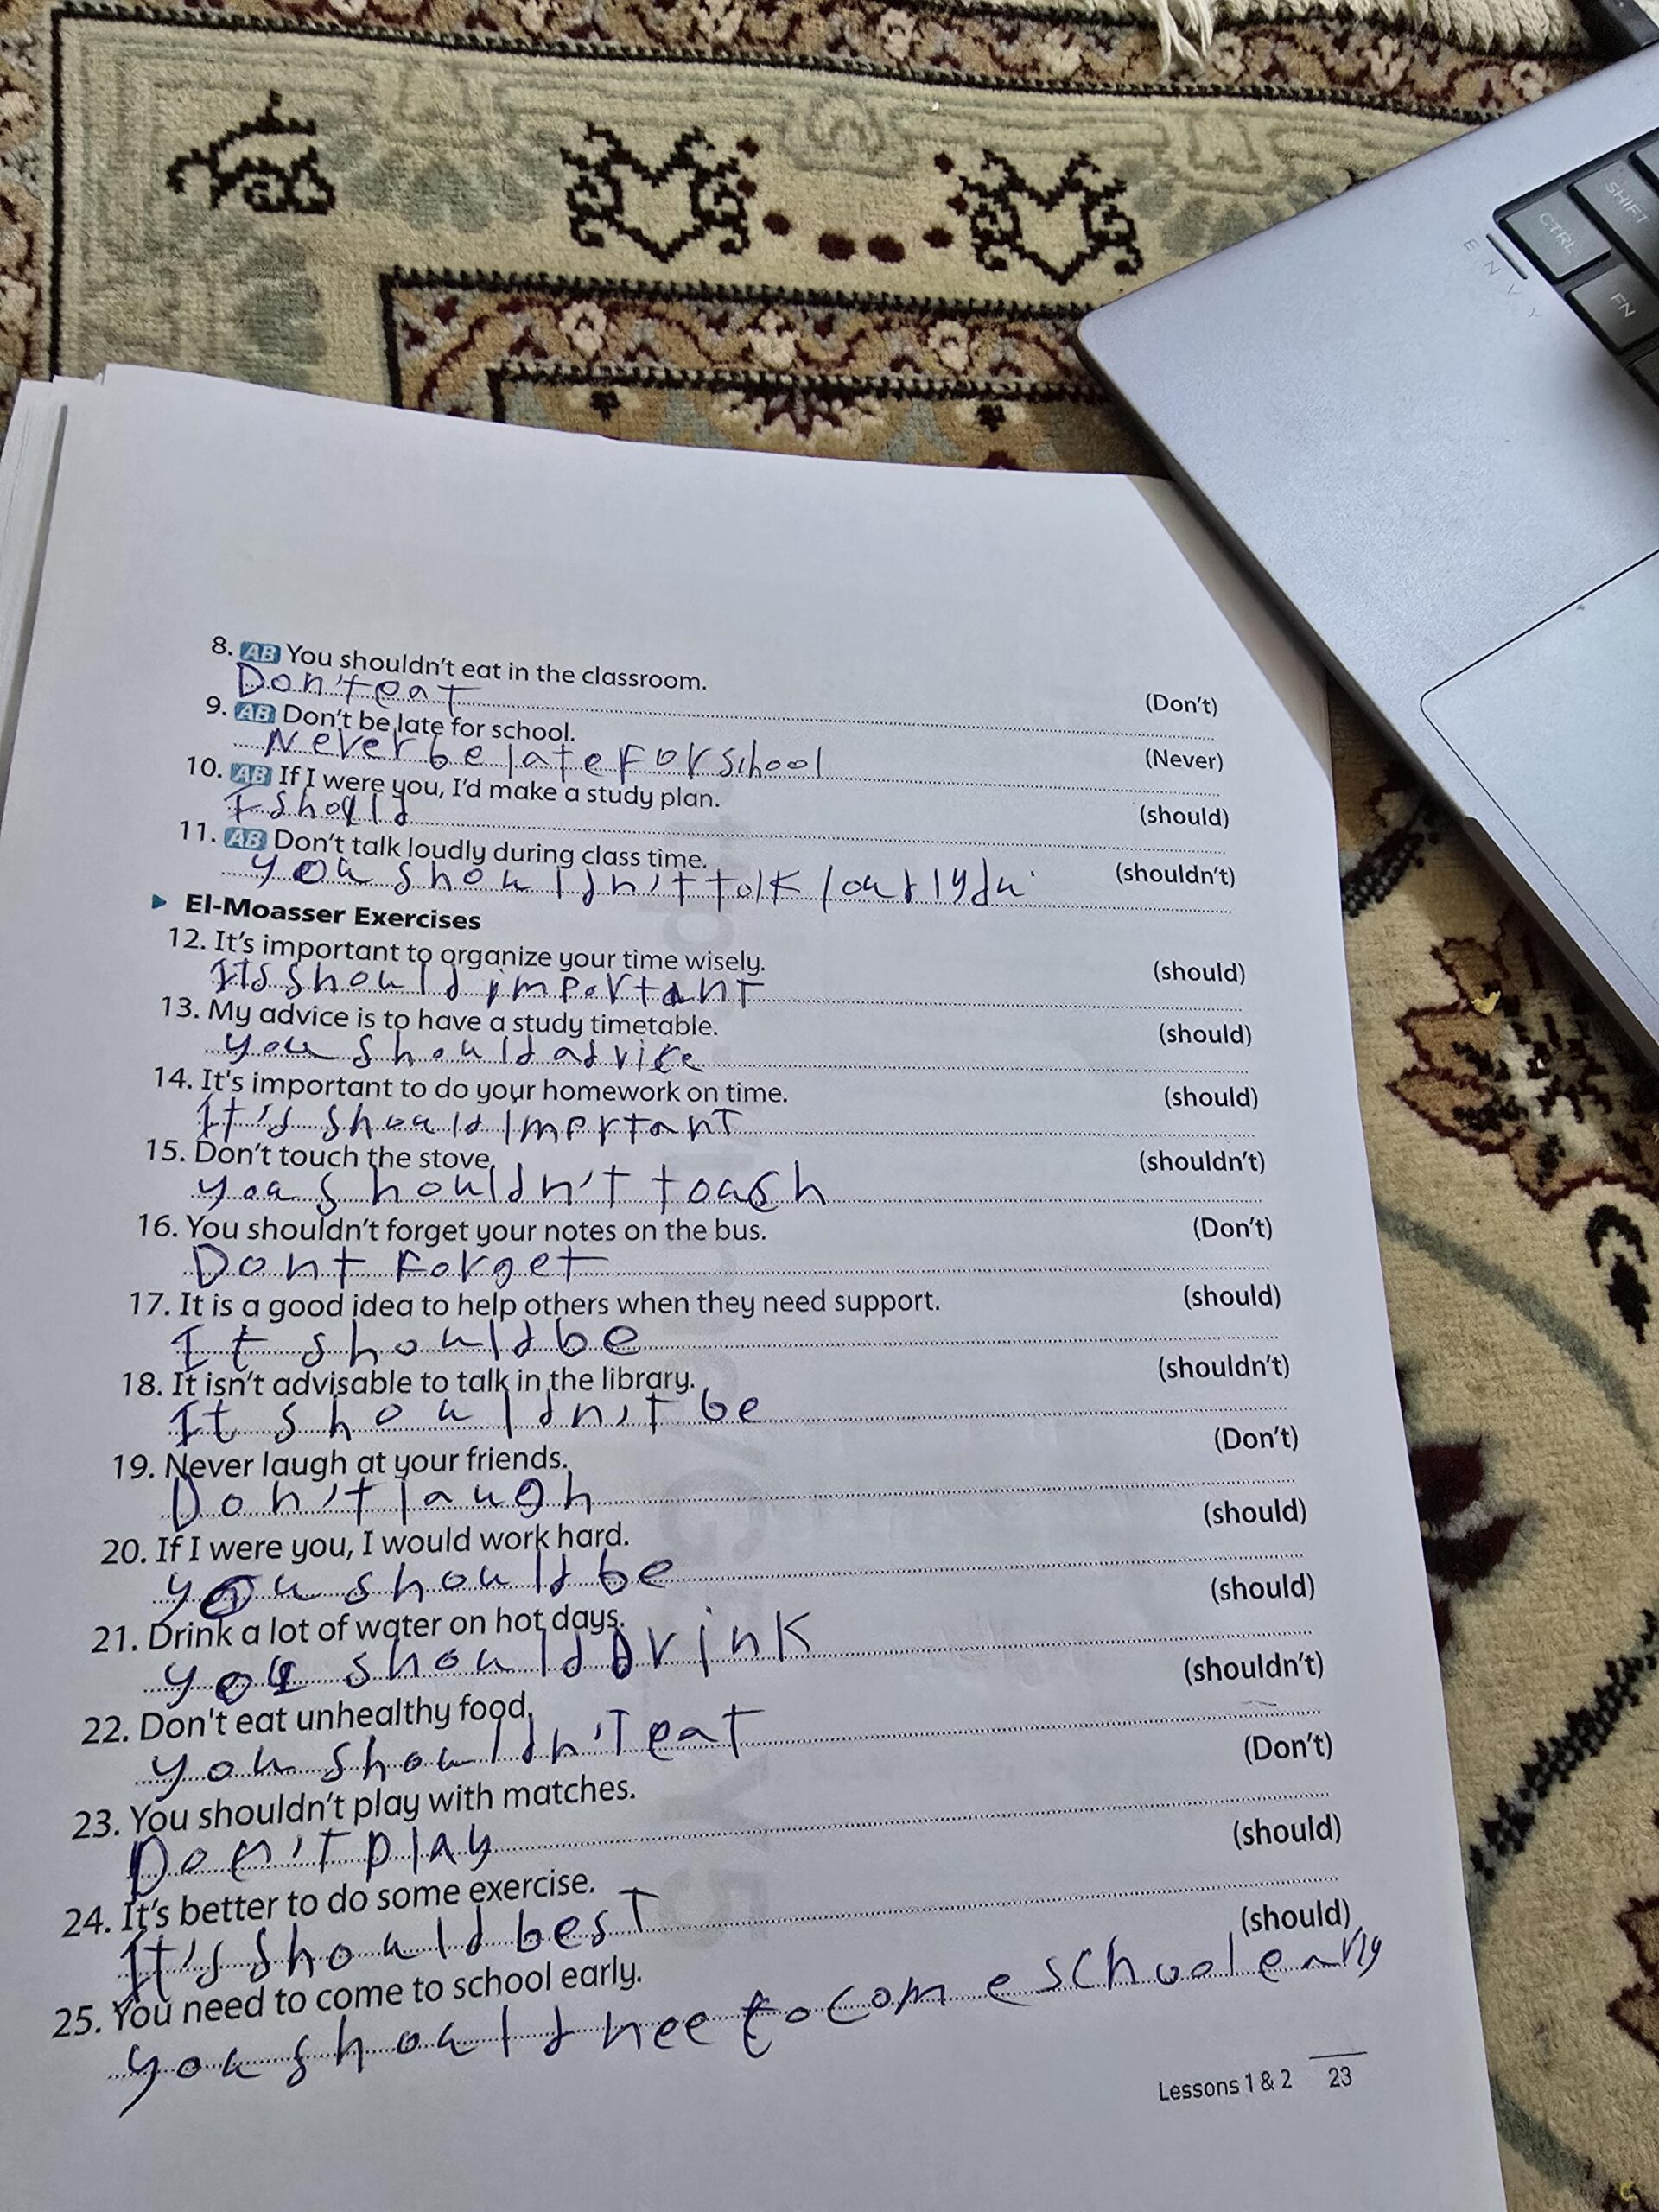 CTRL
SHIFT
FN
ENVY
8. AB You shouldn't eat in the classroom. (Don't)
Don't eat
9. AB Don't be late for school. (Never)
Never be late For school
10. AB If I were you, I'd make a study plan. (should)
I should
11. AB Don't talk loudly during class time. (shouldn't)
you shouldn't talk loudly du
El-Moasser Exercises
12. It's important to organize your time wisely. (should)
Its should important
13. My advice is to have a study timetable. (should)
you should advice
14. It's important to do your homework on time. (should)
It's should Imprtant
15. Don't touch the stove. (shouldn't)
you shouldn't touch
16. You shouldn't forget your notes on the bus. (Don't)
Dont Forget
17. It is a good idea to help others when they need support. (should)
It should be
18. It isn't advisable to talk in the library. (shouldn't)
It shouldn't be
19. Never laugh at your friends. (Don't)
Don't laugh
20. If I were you, I would work hard. (should)
you should be
21. Drink a lot of water on hot days. (should)
you should Drink
22. Don't eat unhealthy food. (shouldn't)
you shouldn'T eat
23. You shouldn't play with matches. (Don't)
Don'T play
24. It's better to do some exercise. (should)
It's should besT
25. You need to come to school early. (should)
you should nee to come school early
Lessons 1 & 2 23